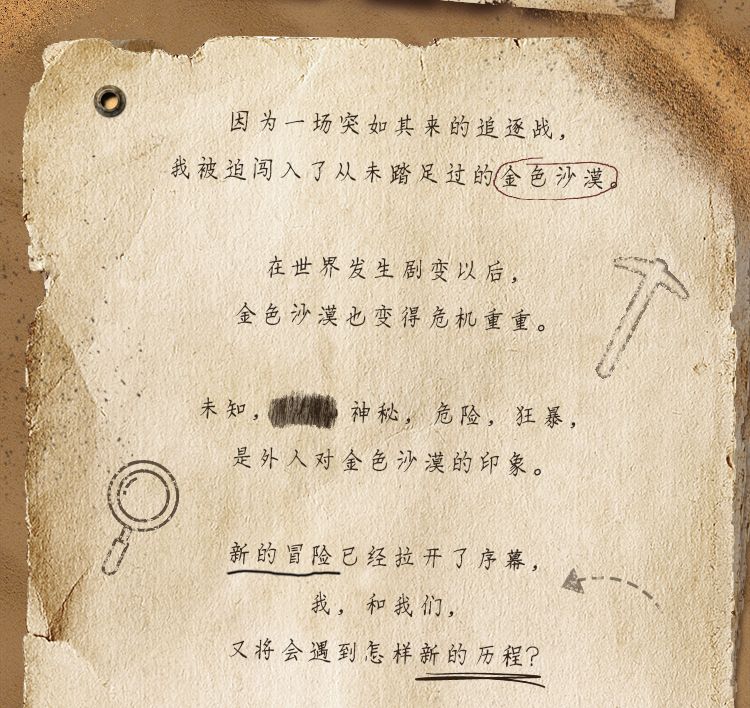 因为一场突如其来的追逐战，
我被迫闯入了从未踏足过的金色沙漠。
在世界发生剧变以后，
金色沙漠也变得危机重重。
未知， 神秘，危险，狂暴，
是外人对金色沙漠的印象。
新的冒险已经拉开了序幕，
我，和我们，
又将会遇到怎样新的历程？